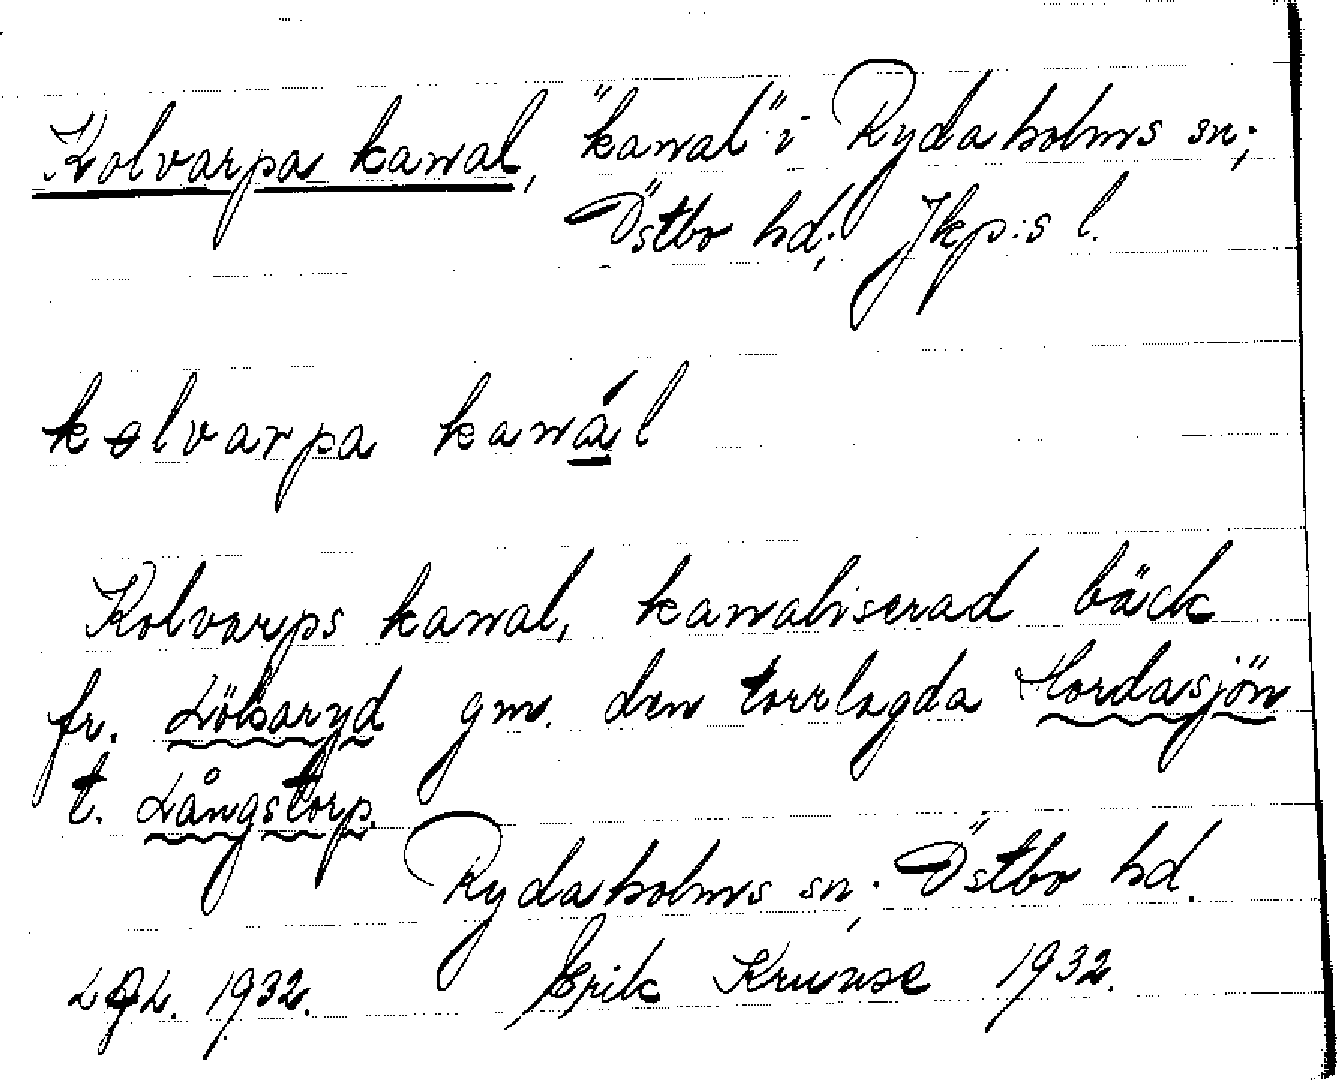 Kolvarpa kanal, "kanal" i Rydaholms sn;
Östbo hd; Jkp:s l.
kolvarpa kanál
Kolvarps kanal, kanaliserad bäck
fr. Löbbaryd gm. den torrlagda Hordasjön
t. Långstorp.
Rydaholms sn; Östbo hd.
1932. Erik Kruuse 1932.